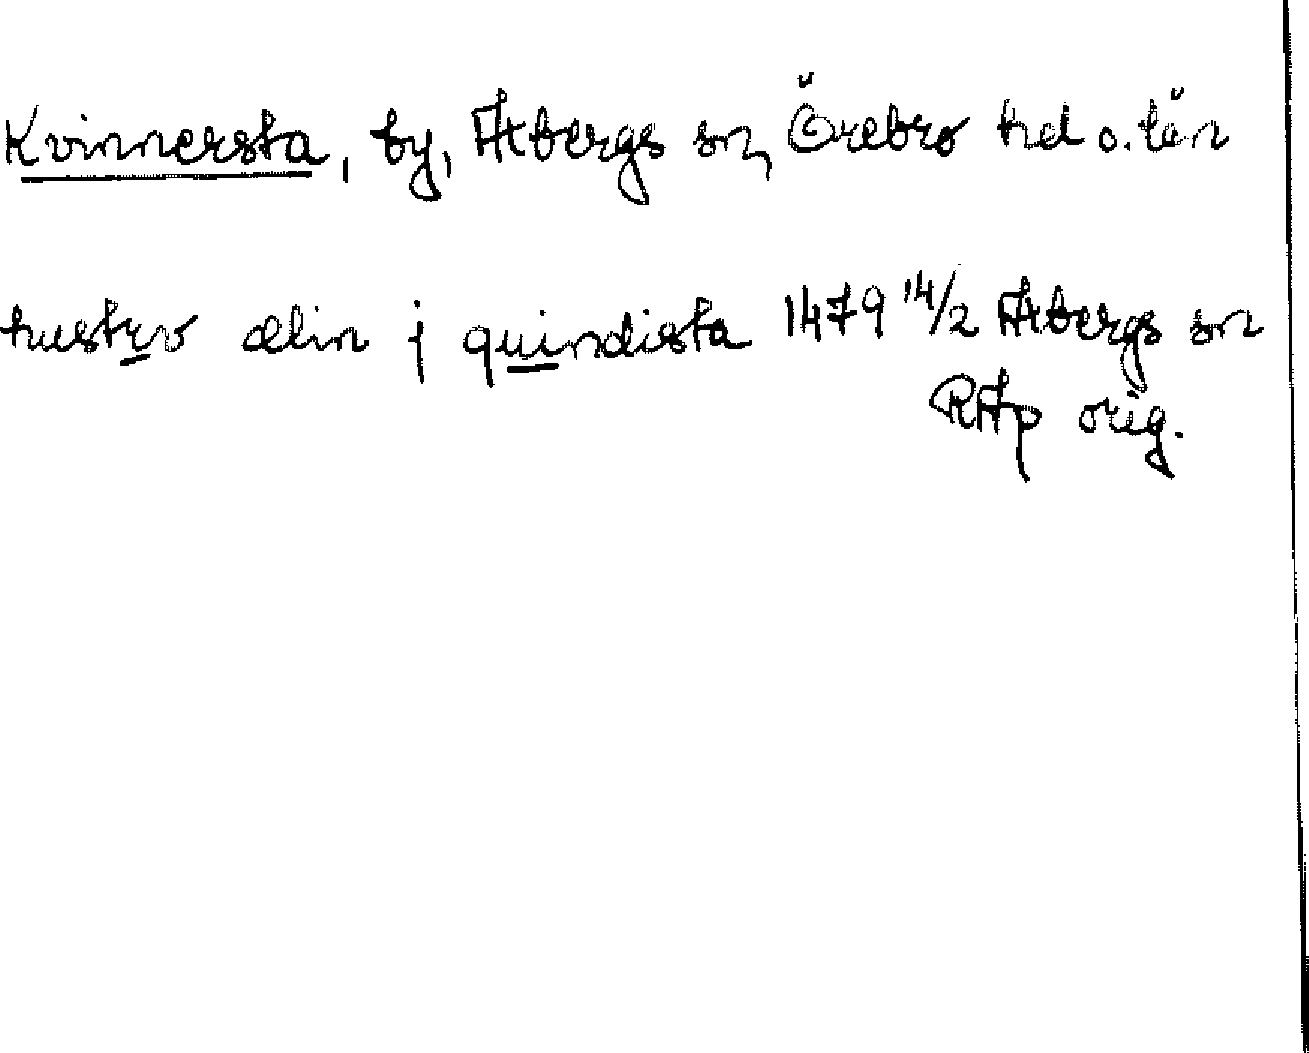 Kvinnersta, by, Axbergs sn, Örebro hd o. län
hustrv ælin j quindista 1479 14/2 Axbergs sn
RAp orig.